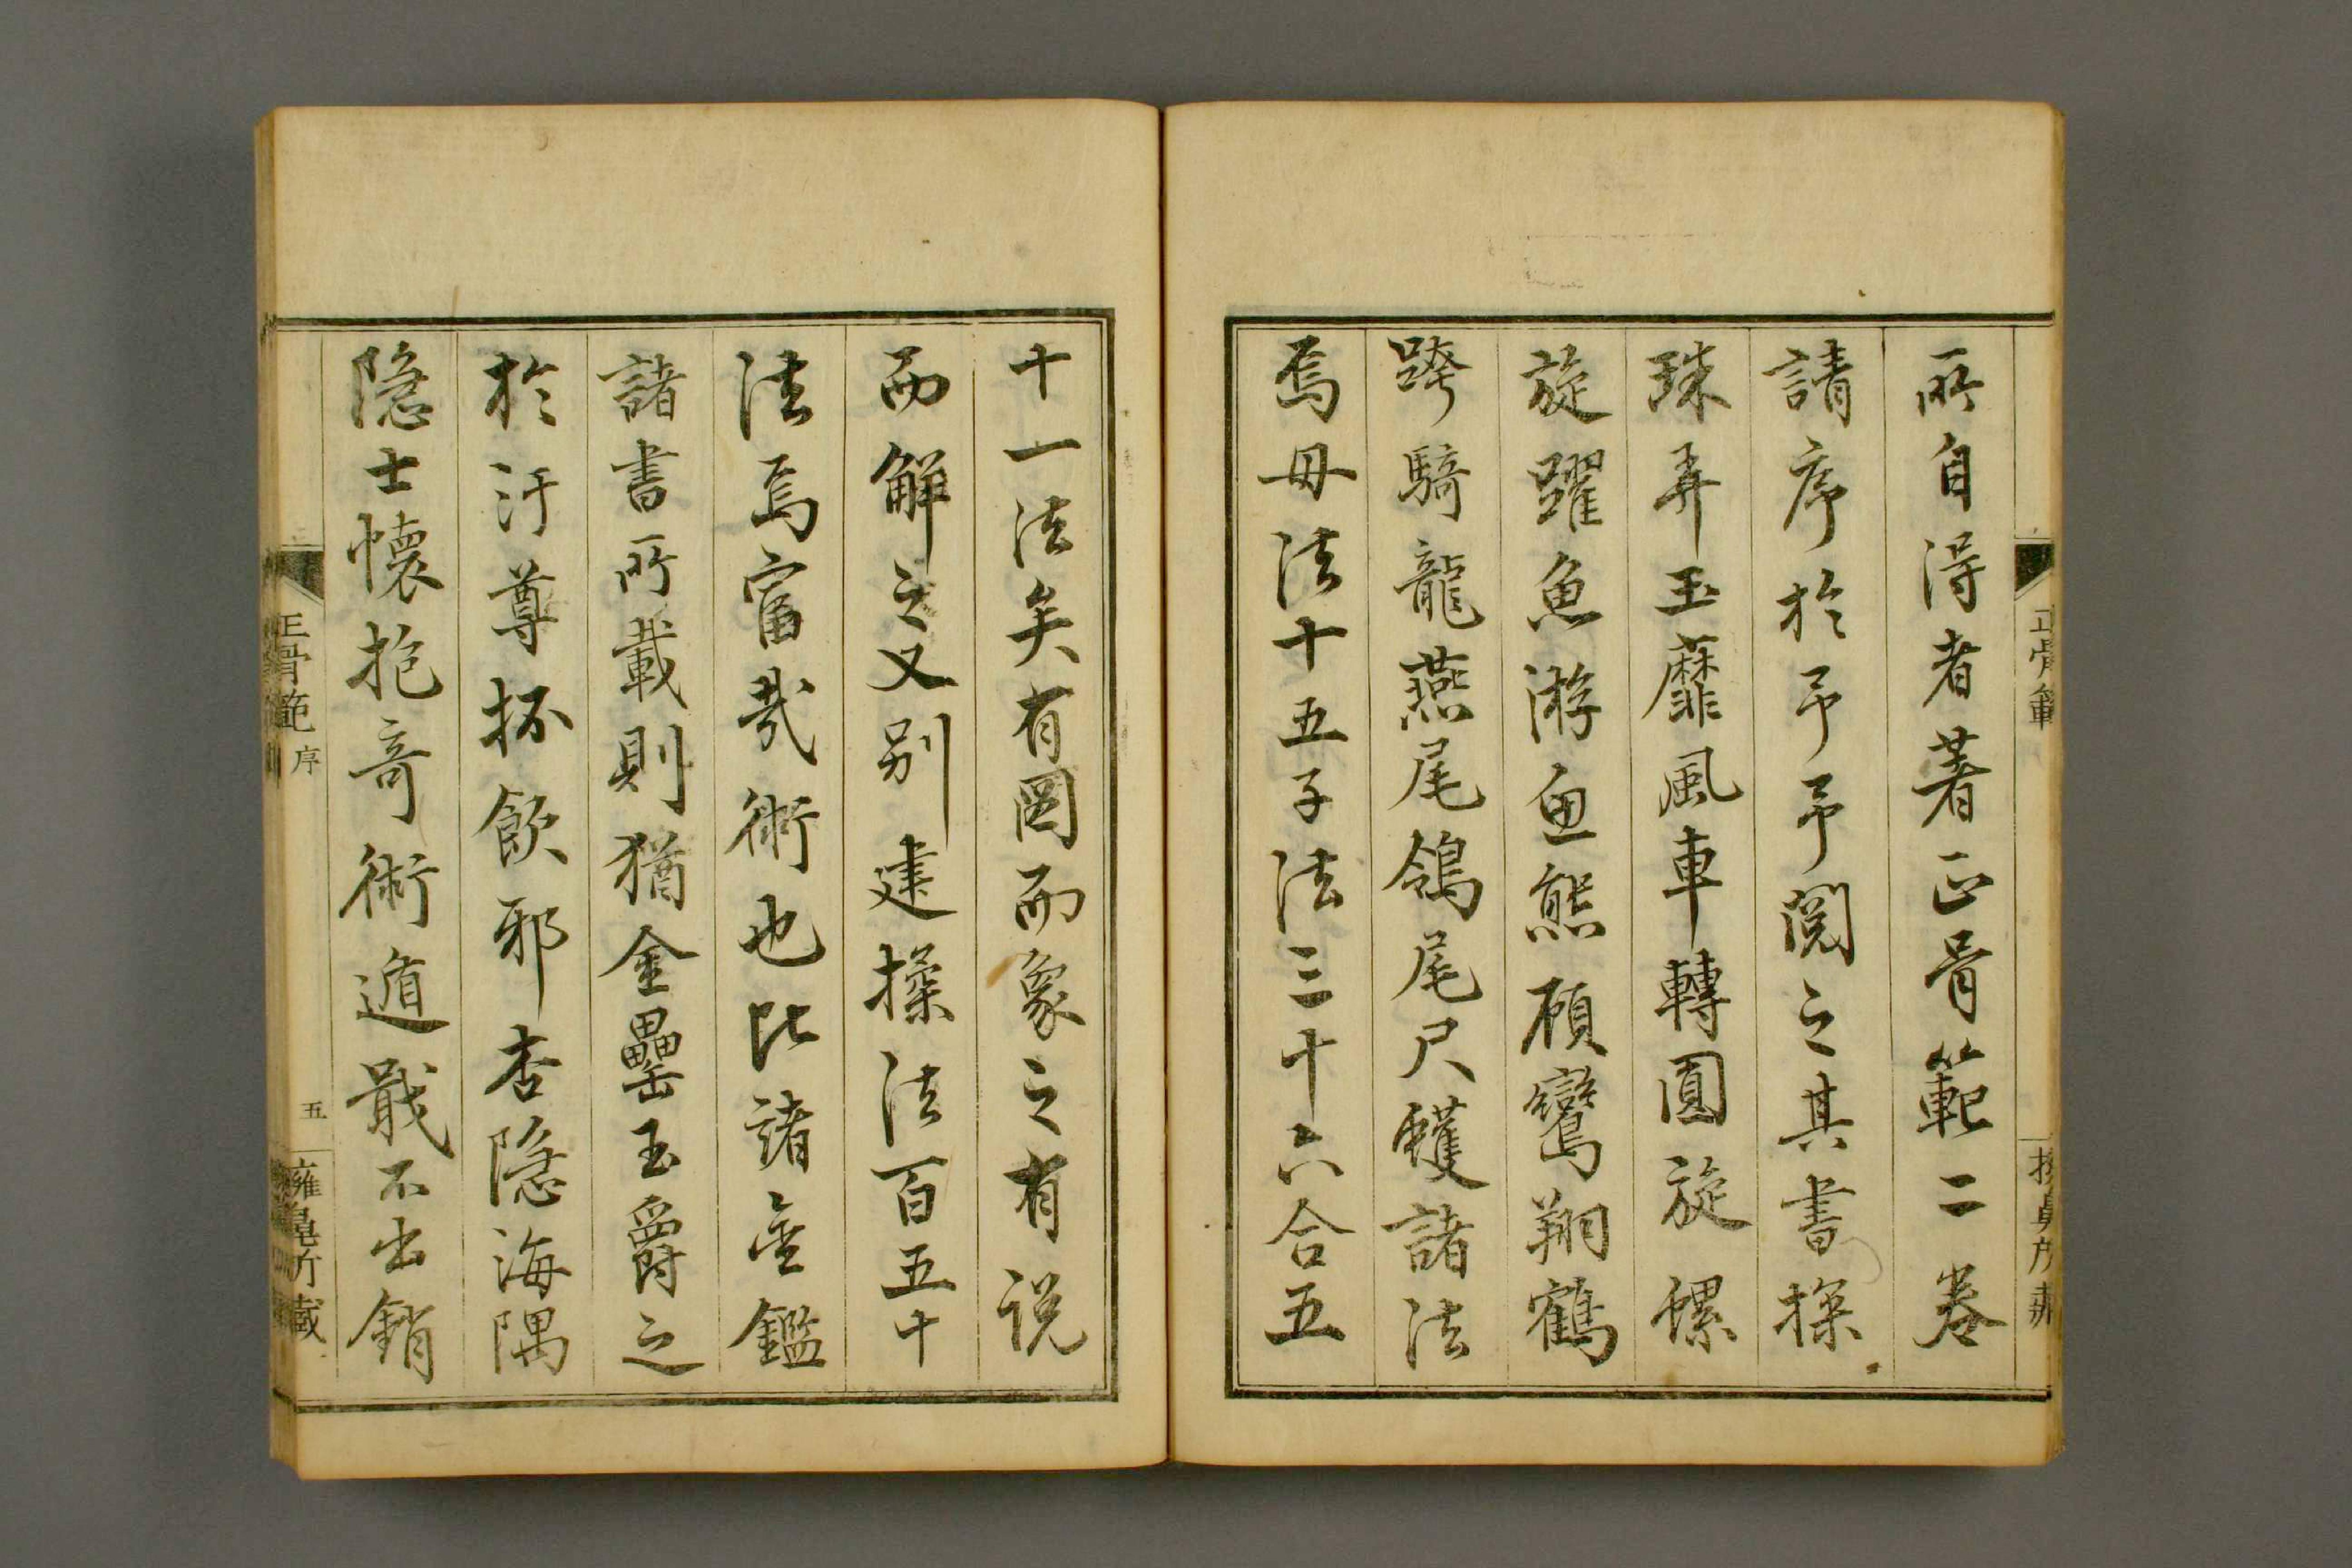 所自得者著正骨範二卷
請序於予予閱之其書探
珠弄玉靡風車轉圓旋螺
旋躍魚游魚熊顧鸞翔鶴
跨騎龍燕尾鴿尾尺蠖諸法
焉母法十五子法三十六合五
十一法矣有圖而象之有説
而解之又別建操法百五十
法焉富哉術也比諸金鑑
諸書所載則猶金罍玉爵之
於汙尊抔飲邪杏隱海隅
隱士懷抱奇術遁戢不出銷
正骨範
正骨範 序
五